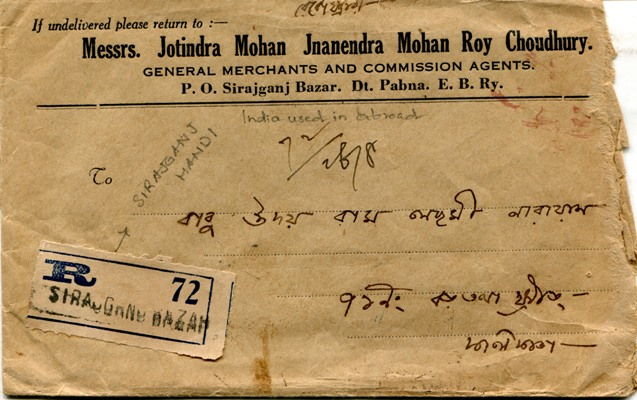 If undelivered please return to :—
Messrs. Jotindra Mohan Jnanendra Mohan Roy Choudhury.
GENERAL MERCHANTS AND COMMISSION AGENTS.
P. O. Sirajganj Bazar. Dt. Pabna. E. B. Ry.
India used in abroad
SIRAJGANJ
MANDI
To
বাবু উদয় রাম লছমী নারায়ণ
R 72
SIRAJGANJ BAZAR